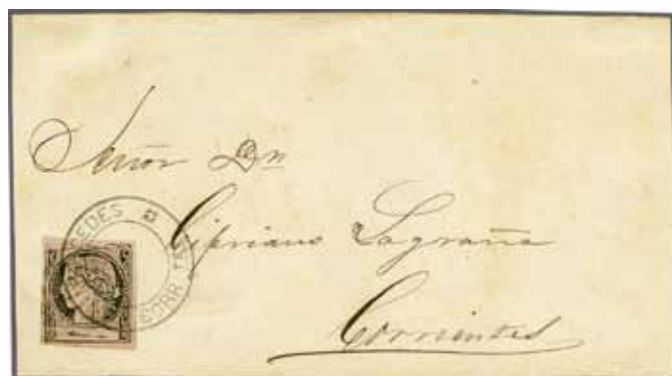 Señor Dn
Cipriano Lagraña
Corrientes
CEDES
CORR.TES